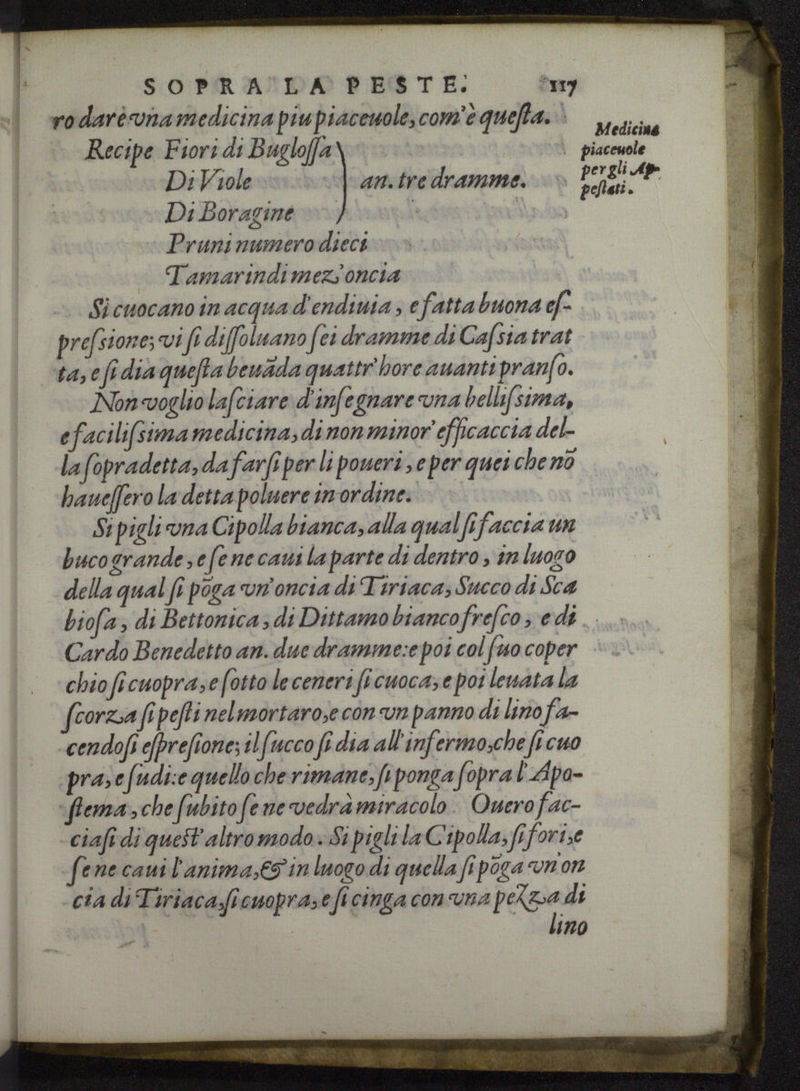 SOPRA LA PESTE. 117
ro darè vna medicina piu piaceuole, com'è questa.
Medicina
piaceuole
per gli Ap-
pestati.
Recipe Fiori di Buglossa
Di Viole } an. tre dramme.
Di Boragine
Pruni numero dieci
Tamarindi mez'oncia
Si cuocano in acqua d'endiuia, e fatta buona es-
pressione; vi si dissoluano sei dramme di Cassia trat
ta, e si dia questa beuãda quattr'hore auanti pranso.
Non voglio lasciare d'insegnare vna bellissima,
e facilissima medicina, di non minor' efficaccia del-
la sopradetta, da farsi per li poueri, e per quei che nõ
hauessero la detta poluere in ordine.
Si pigli vna Cipolla bianca, alla qual si faccia un
buco grande, e se ne caui la parte di dentro, in luogo
della qual si põga vn'oncia di Tiriaca, Succo di Sca
biosa, di Bettonica, di Dittamo bianco fresco, e di
Cardo Benedetto an. due dramme: e poi col suo coper
chio si cuopra, e sotto le ceneri si cuoca, e poi leuata la
scorza si pesti nel mortaro, e con vn panno di lino fa-
cendosi espresione; il succo si dia all'infermo, che si cuo
pra, e sudi: e quello che rimane, si ponga sopra l'Apo-
stema, che subito se ne vedrà miracolo. Ouero fac-
ciasi di quest'altro modo. Si pigli la Cipolla, si fori, e
se ne caui l'anima, & in luogo di quella si põga vn on
cia di Tiriaca, si cuopra, e si cinga con vna pezza di
lino